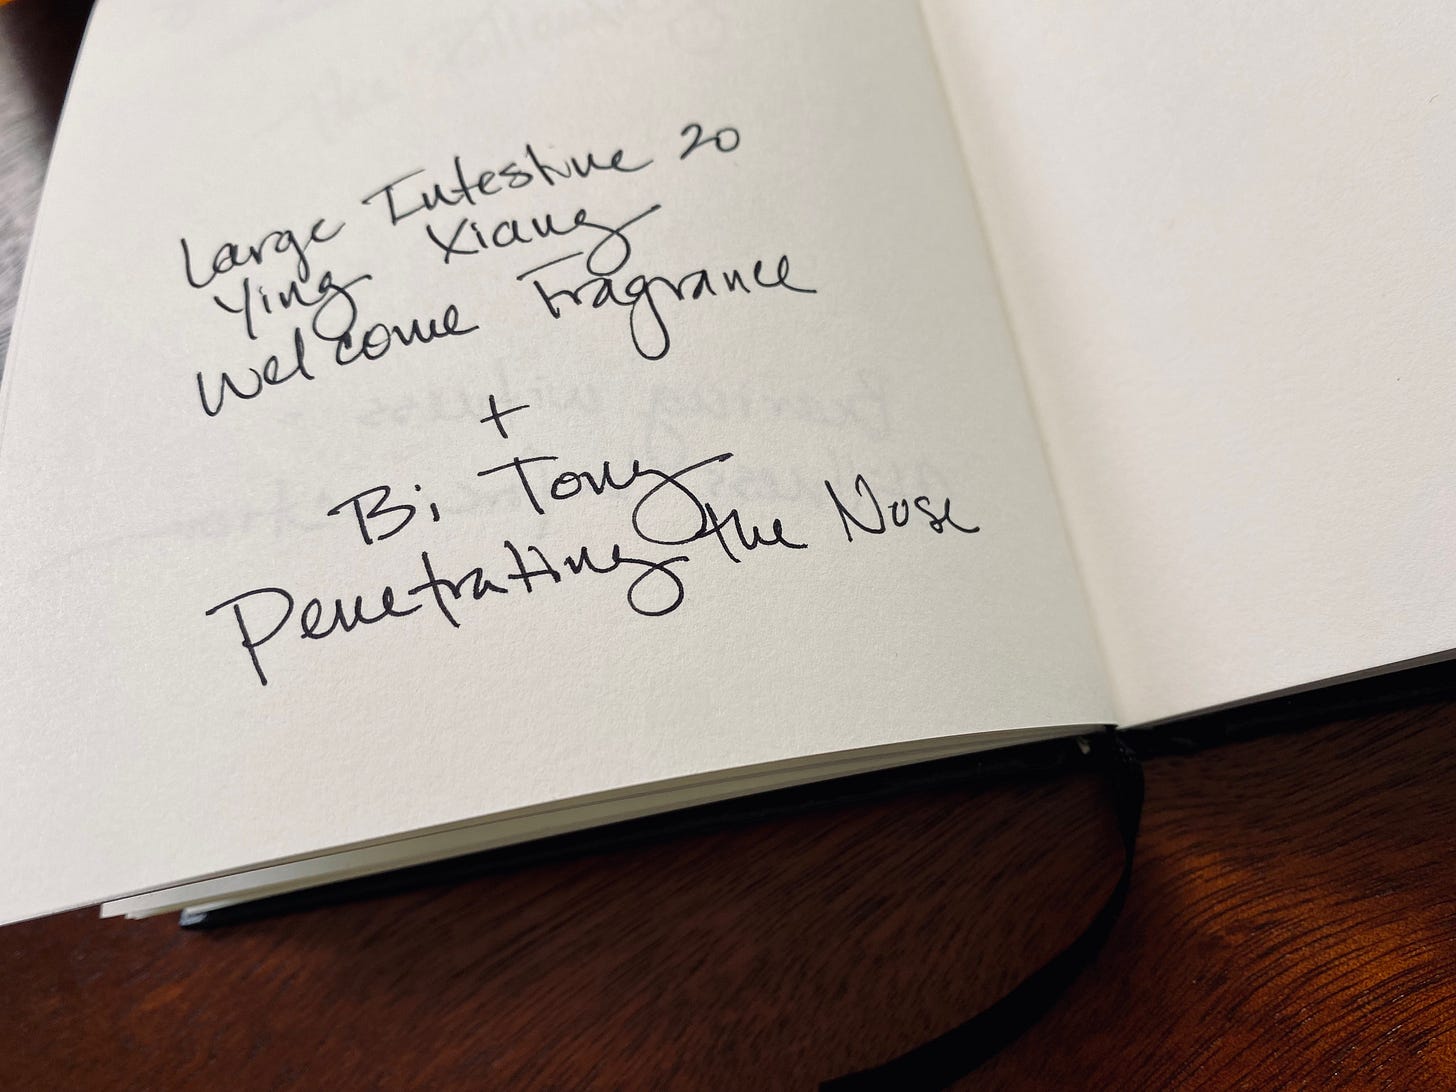 Large Intestine 20
Ying Xiang
Welcome Fragrance
+
Bi Tong
Penetrating the Nose